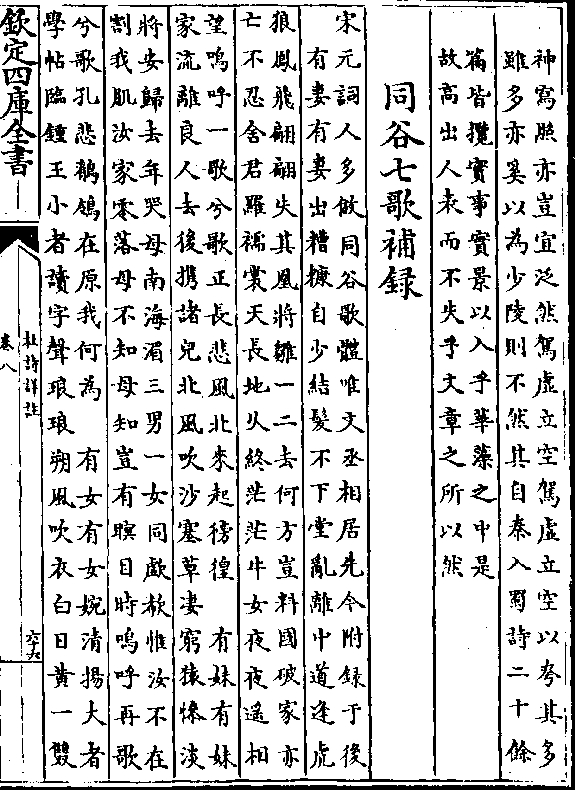 神寫照亦豈宜泛然駕虛立空駕虛立空以夸其多
雖多亦奚以為少陵則不然其自秦入蜀詩二十餘
篇皆攬實事實景以入乎華藻之中是
故高出人表而不失乎文章之所以然
同谷七歌補録
宋元詞人多倣同谷歌體唯文丞相居先今附録于後
有妻有妻出糟糠自少結髮不下堂亂離中道逢虎
狼鳳飛翩翩失其凰將雛一二去何方豈料國破家亦
亡不忍舍君羅襦裳天長地久終茫茫牛女夜夜遥相
望嗚呼一歌兮歌正長悲風北來起徬徨　有妹有妹
家流離良人去後携諸兒北風吹沙塞草凄窮猿慘淡
將安歸去年哭母南海湄三男一女同歔欷惟汝不在
割我肌汝家零落母不知母知豈有瞑目時嗚呼再歌
兮歌孔悲鶺鴒在原我何為　有女有女婉清揚大者
學帖臨鍾王小者讀字聲琅琅朔風吹衣白日黄一雙
欽定四庫全書
杜詩詳註
卷八